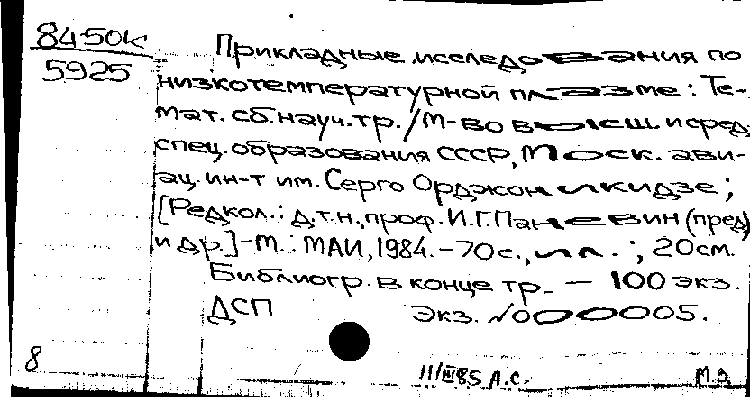 84-50К
5925
Прикладные исследования по
низкотемпературной плазме: Те-
мат. сб. науч. тр. / М-во высш. и сред.
спец. образования СССР, Моск. ави-
ац. ин-т им. Серго Орджоникидзе;
[Редкол.: д.т.н., проф. И.Г. Паневин (пред)
и др.] - М.: МАИ, 1984. - 70 с., ил.; 20 см.
Библиогр. в конце тр. - 100 экз.
ДСП Экз. №000005.
8
11/III 85 А.С. М.Э